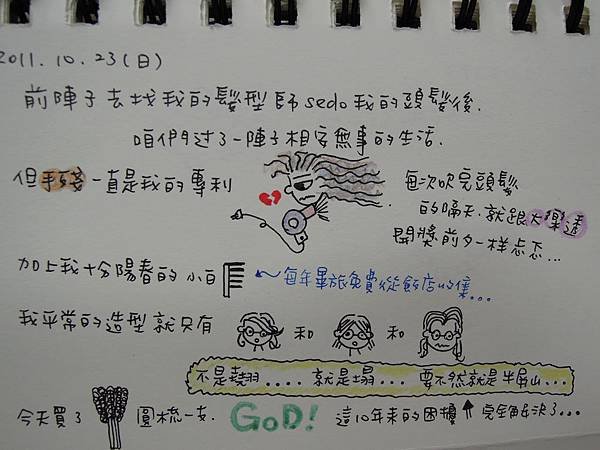 2011.10.23(日)
前陣子去找我的髮型師sedo我的頭髮後.
咱們过了一陣子相安無事的生活.
但手殘一直是我的專利
每次吹完頭髮
的隔天.就跟大樂透
開獎前夕一样忐忑...
加上我十分陽春的小白
每年畢旅免費從飯店收集...
我平常的造型就只有 和 和
不是翹.... 就是塌... 要不然就是牛屎山...
今天買了 圓梳一支. GOD! 這10年來的困擾 完全解決了...